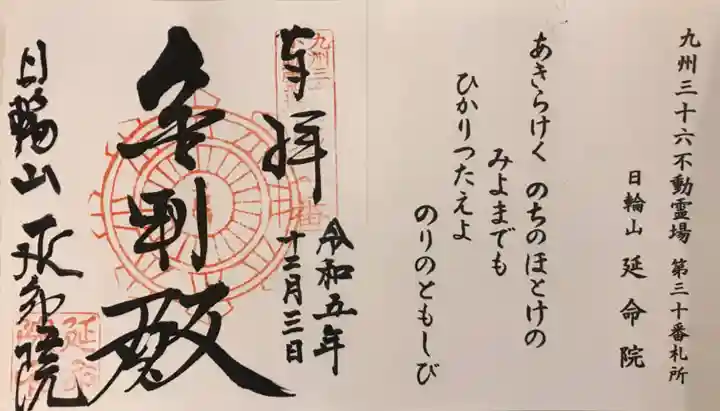 九州三十六不動霊場 第三十番札所
日輪山 延命院
あきらけく のちのほとけの
みよまでも
ひかりつたえよ
のりのともしび
奉拝
令和五年
十二月三日
舎利殿
日輪山 延命院